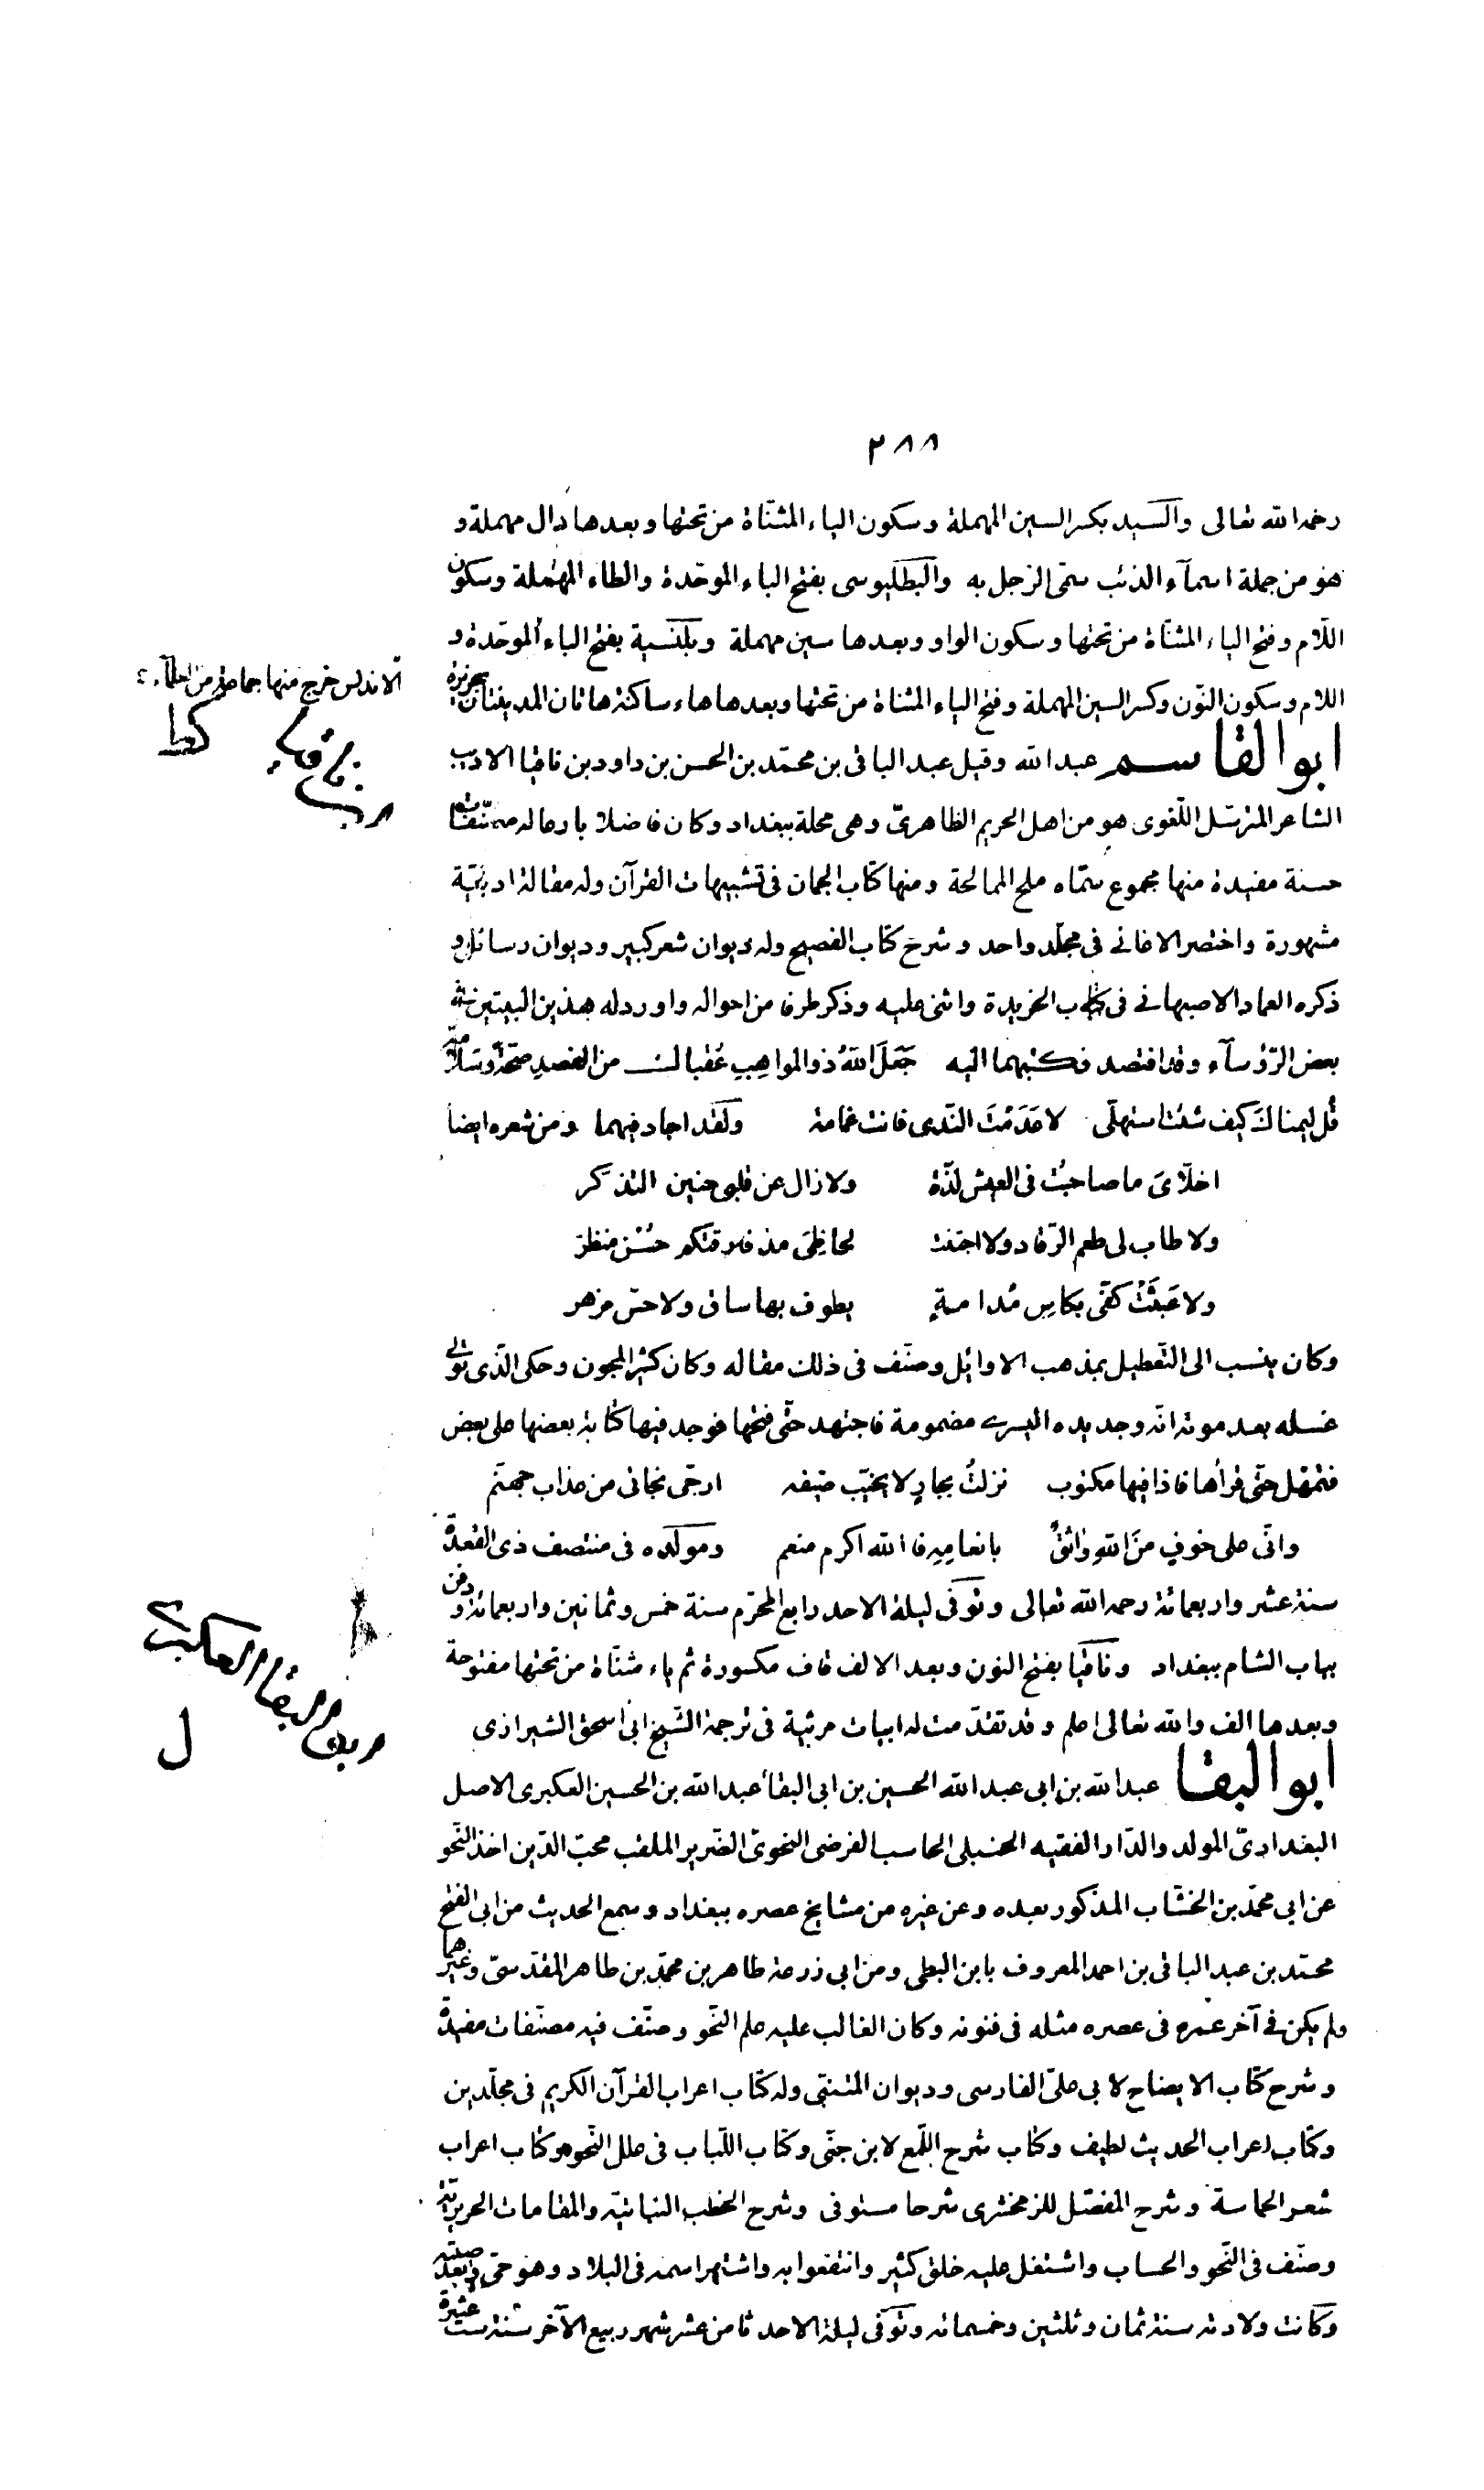 ٢٨٨
رحمه الله تعالى والسيد بكسر السين المهملة وسكون الياء المثنّاة من تحتها وبعدها دال مهملة و
هو من جملة اسمآء الذئب سمّى الرجل به والبطليوسى بفتح الباء الموحّدة والطاء المهملة وسكون
اللّام وفتح الياء المثنّاة من تحتها وسكون الواو وبعدها سين مهملة وبلنسية بفتح الباء الموحّدة و
اللام وسكون النّون وكسر السين المهملة وفتح الياء المثناة من تحتها وبعدها هاء ساكنة هاتان المدينتان بجزيرة
الاندلس خرج منها جماعة من العلمآء
ابن ناقيا
ابو القاسم عبد الله وقيل عبد الباقى بن محمّد بن الحسن بن داود بن ناقيا الاديب
الشاعر المترسّل اللّغوى هو من اهل الحريم الظاهرىّ وهى محلة ببغداد وكان فاضلا بارعا له مصنّفات
حسنة مفيدة منها مجموع سمّاه ملح الممالحة ومنها كتاب الجمان فى تشبيهات القرآن وله مقالة ادبيّة
مشهورة واختصر الاغانے فى مجلّد واحد وشرح كتاب الفصيح وله ديوان شعر كبير وديوان رسائل و
ذكره العماد الاصبهانے فى كتاب الخريدة واثنى عليه وذكر طرفا من احواله واورد له هذين البيتين فى
بعض الرّؤسآء وقد افتصد فكتبهما اليه جَعَلَ اللّهُ ذو المواهِبِ عُقبا لك من الفصدِ صحّةً وسَلامة
قُل ليمناكَ كيف شئت استهلّى لا عَدَمْتَ النّدى فانت غمامة ولقد اجاد فيهما ومن شعره ايضا
اخلّاىَ ما صاحبْت فى العيش لذّة ولا زال عن قلبى حنين التذكّر
ولا طاب لى طعم الرّقاد ولا اجتنت لحاظِىَ مذ فارقتكم حُسْن منظر
ولا عَبِثَتْ كفّى بكاسِ مُدامةٍ يطوف بها ساق ولا حسّ مزهر
وكان ينسب الى التّعطيل بمذهب الاوائل وصنّف فى ذلك مقاله وكان كثير المجون وحكى الّذى تولى
غسله بعد موته انّه وجد يده اليسرے مضمومة فاجتهد حتّى فتحها فوجد فيها كتابة بعضها على بعض
فتمهّل حتّى قرأها فاذا فيها مكتوب نزلتُ بجارٍ لا يخيّب ضيفه ارجّى نجاتى من عذاب جهنّم
وانّى على خوفى منَ اللّهِ واثِقٌ بانعامِهِ فالله اكرم منعم ومولده فى منتصف ذى القعدة
سنة عشر واربعمائة رحمه الله تعالى وتوفى ليلة الاحد رابع المحرّم سنة خمس وثمانين واربعمائة ودفن
بباب الشام ببغداد وناقيا بفتح النون وبعد الالف قاف مكسورة ثم ياء مثنّاة من تحتها مفتوحة
وبعدها الف والله تعالى اعلم وقد تقدّمت له ابيات مرثية فى ترجمة الشّيخ ابى اسحق الشيرازى
ابو البقا العكبرى
ل
ابو البقا عبد الله بن ابى عبد الله الحسين بن ابى البقاء عبد الله بن الحسين العكبرى الاصل
البغدادىّ المولد والدّار الفقيه الحنبلى الحاسب الفرضى النحوىّ الضرير الملقب محبّ الدّين اخذ النّحو
عن ابى محمّد بن الخشّاب المذكور بعده وعن غيره من مشايخ عصره ببغداد وسمع الحديث من ابى الفتح
محمّد بن عبد الباقى بن احمد المعروف بابن البطى ومن ابى زرعة طاهر بن محمّد بن طاهر المقدسىّ وغيرهما
ولم يكن فى آخر عمره فى عصره مثله فى فنونه وكان الغالب عليه علم النّحو وصنّف فيه مصنّفات مفيدة
وشرح كتاب الايضاح لابى علىّ الفارسى وديوان المتنبّى وله كتاب اعراب القرآن الكريم فى مجلّدين
وكتاب اعراب الحديث لطيف وكتاب شرح اللّمع لابن جنّى وكتاب اللّباب فى علل النّحو وكتاب اعراب
شعر الحماسة وشرح المفصّل للزمخشرى شرحا مستوفى وشرح الخطب النباتيّة والمقامات الحريريّة
وصنّف فى النّحو والحساب واشتغل عليه خلق كثير وانتفعوا به واشتهر اسمه فى البلاد وهو حىّ وبعد صيته
وكانت ولادته سنة ثمان وثلثين وخمسمائه وتوفّى ليلة الاحد ثامن عشر شهر ربيع الآخر سنة ست عشرة